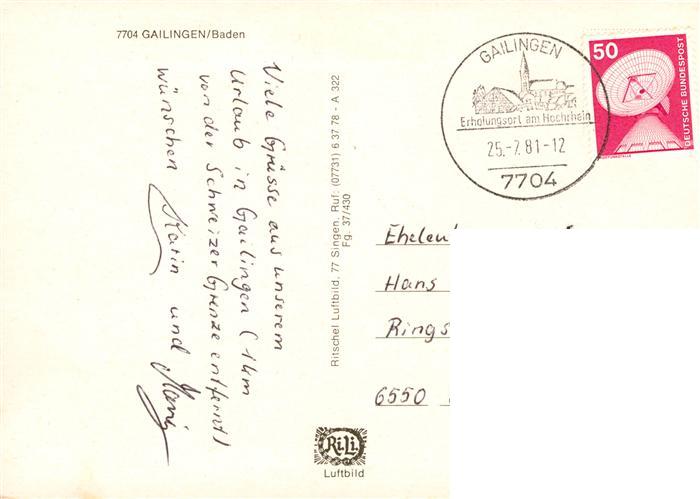 7704 GAILINGEN/Baden
Viele Grüsse aus unserem
Urlaub in Gailingen (1km
von der Schweizer Grenze entfernt)
wünschen Karin und
Ritschel Luftbild, 77 Singen, Ruf: (07731) 6 37 78 - A 322
Fg. 37/430
RiLi
Luftbild
GAILINGEN
Erholungsort am Hochrhein
25.-7.81-12
7704
50
DEUTSCHE BUNDESPOST
Hans
6550